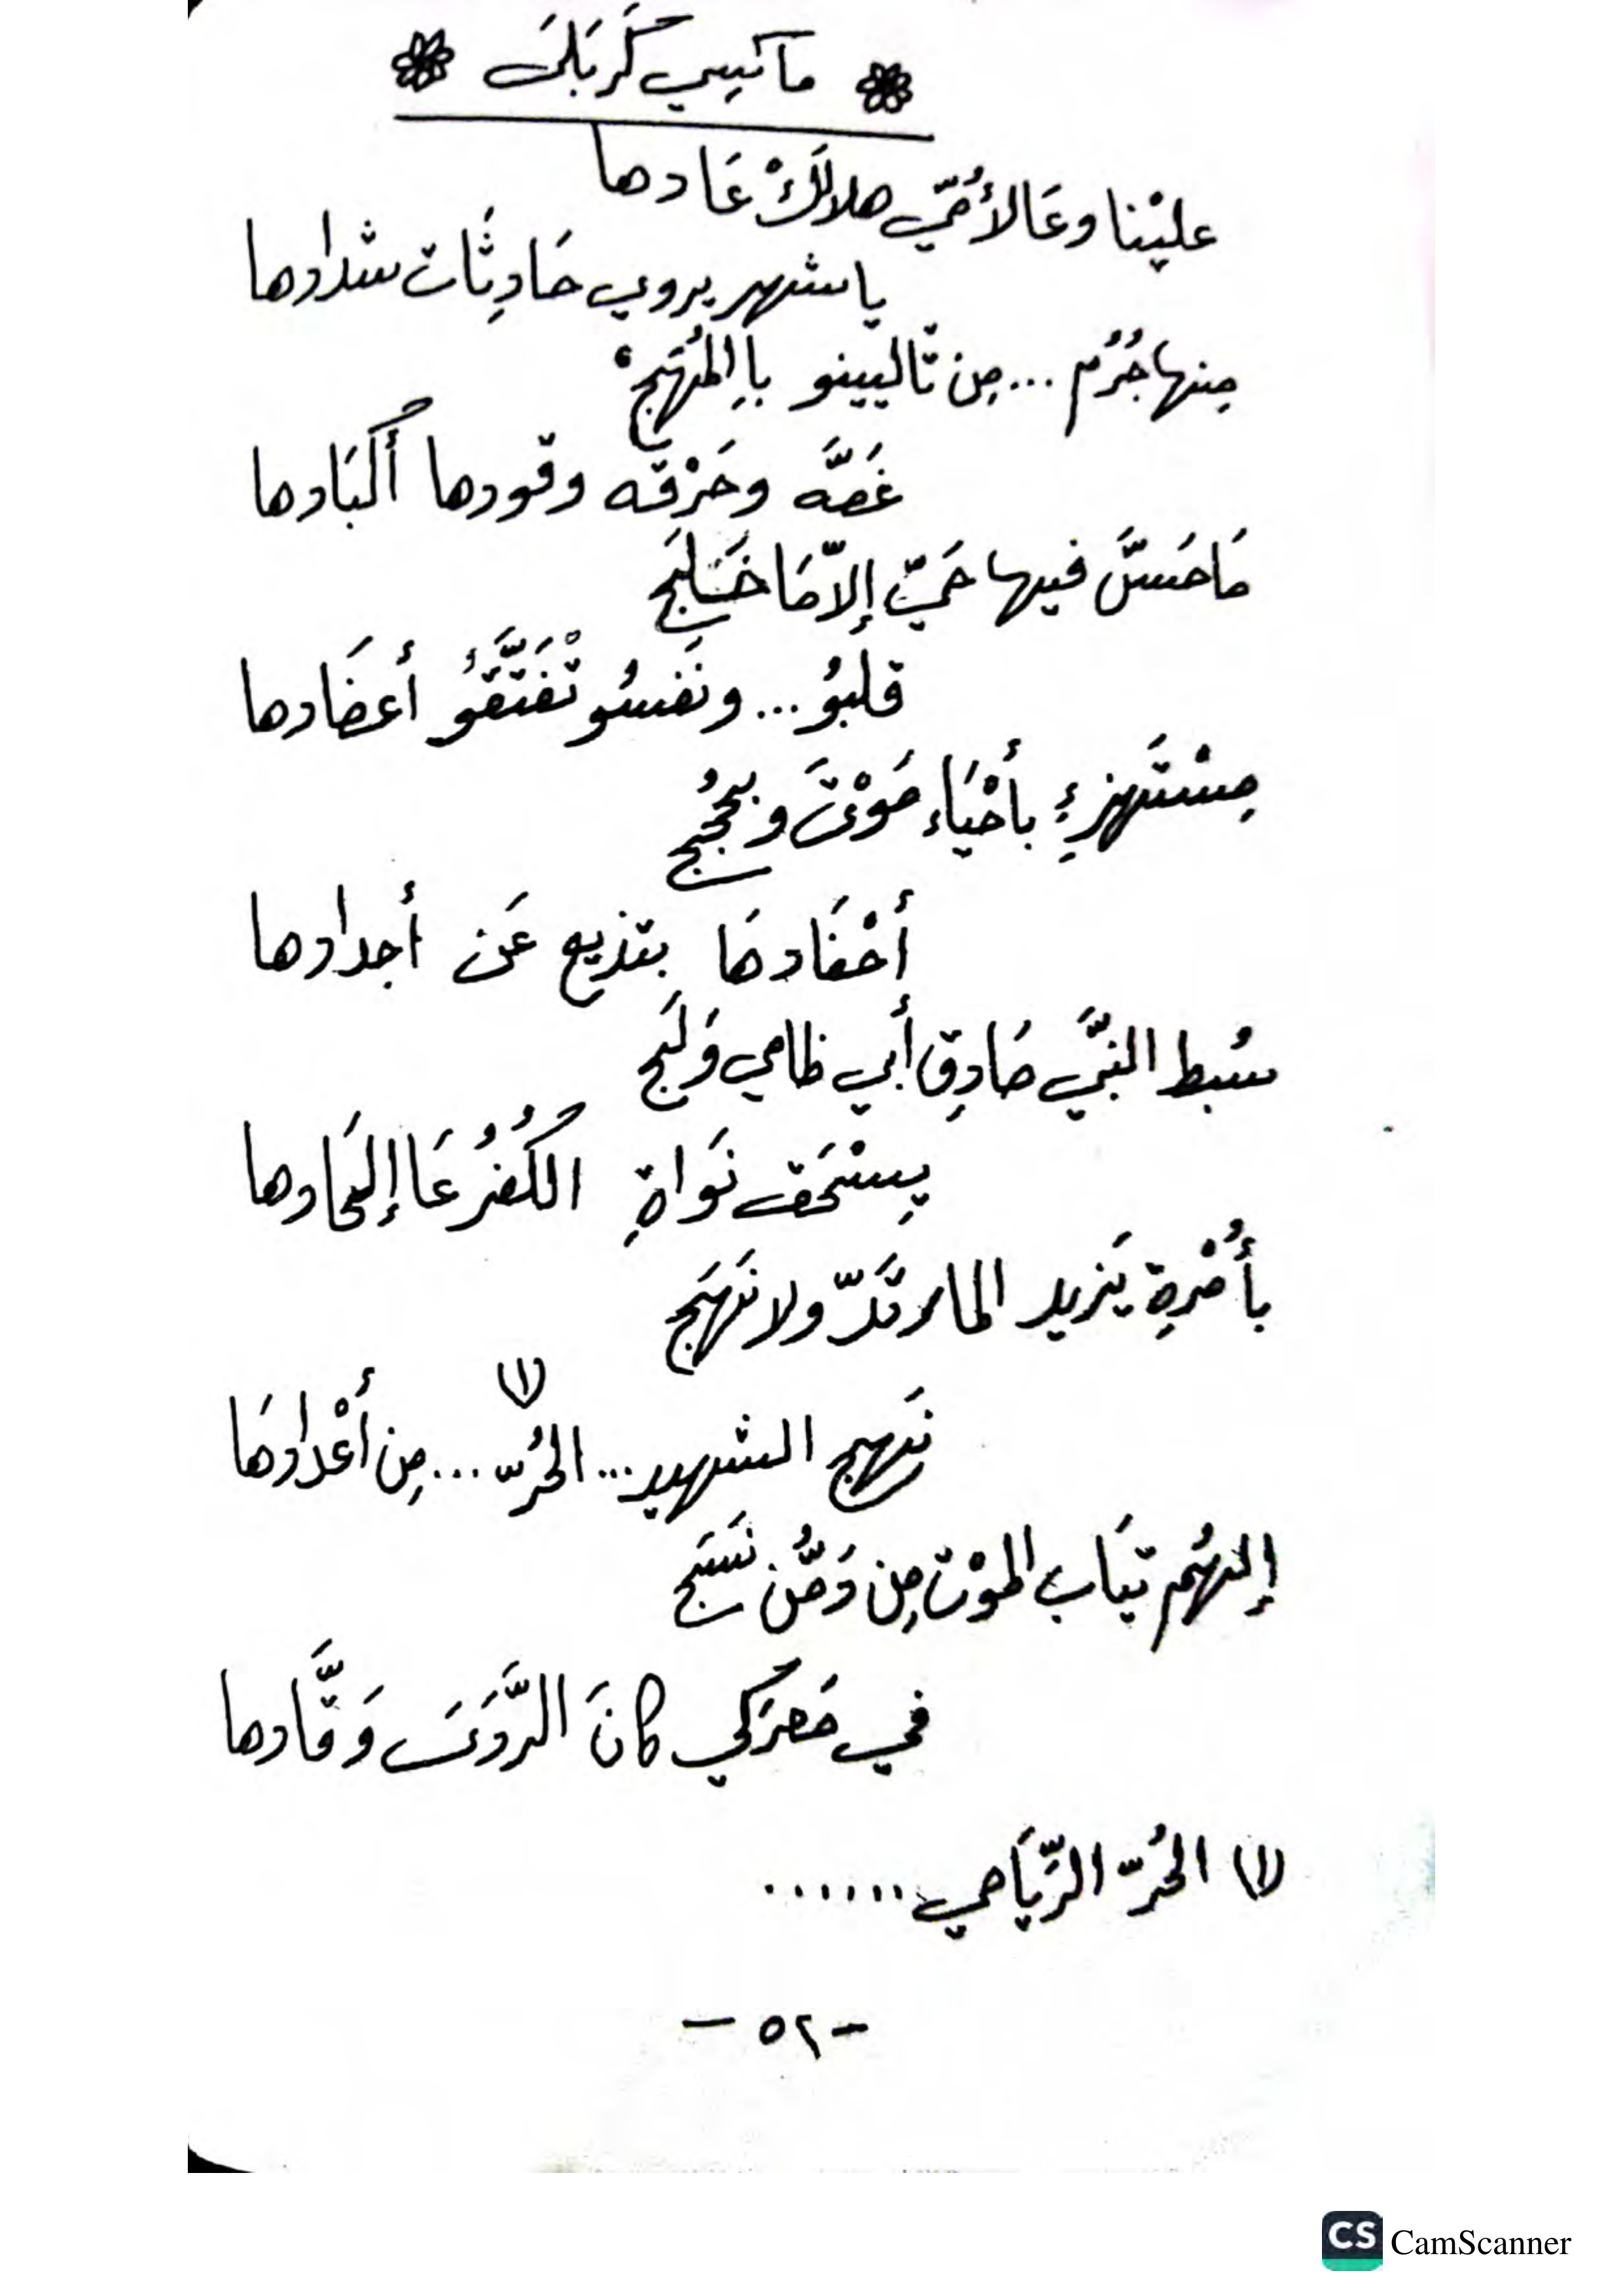 مآسِي كَربَلىَ
عليْنا وعَالأُمّي هلالَكْ عَادها
يا شهر يروي حَادِثَات شدادها
مِنها جُرُم ... مِن تَاليينو بالِمُهَج
غَصَّه وحَرْقَه وقودها أَكبَادها
مَاحَسَّ فيها حَيّ إلاّ مَا خَلَج
قلبُو ... ونَفسُو تْفَتَّقُو أعضَادها
مِسْتَهزءِ بأحْيَاء مَوْتىَ و
أحْفَادهَا بتذيع عَن أجدادها
سُبط النبَّي صَادِق أبي ظامي وَلَج
يِسْحَق نَوَاةِ الكُفُر عَا إلحَادها
بأُمْرةِ يَزيد الما رتَدّ ولا نَهَج
نَهج الشهيد ... الحُرّ (١) ... مِن أعْدادهَا
إلهُم تيَاب الموْت مِن دَمُّن نَسَج
في مَعرَكي كانَ الرَّدَىَ وَقَّادها
(١) الحُرّ الرِّيَاحي ......
- ٥٢ -
CS CamScanner